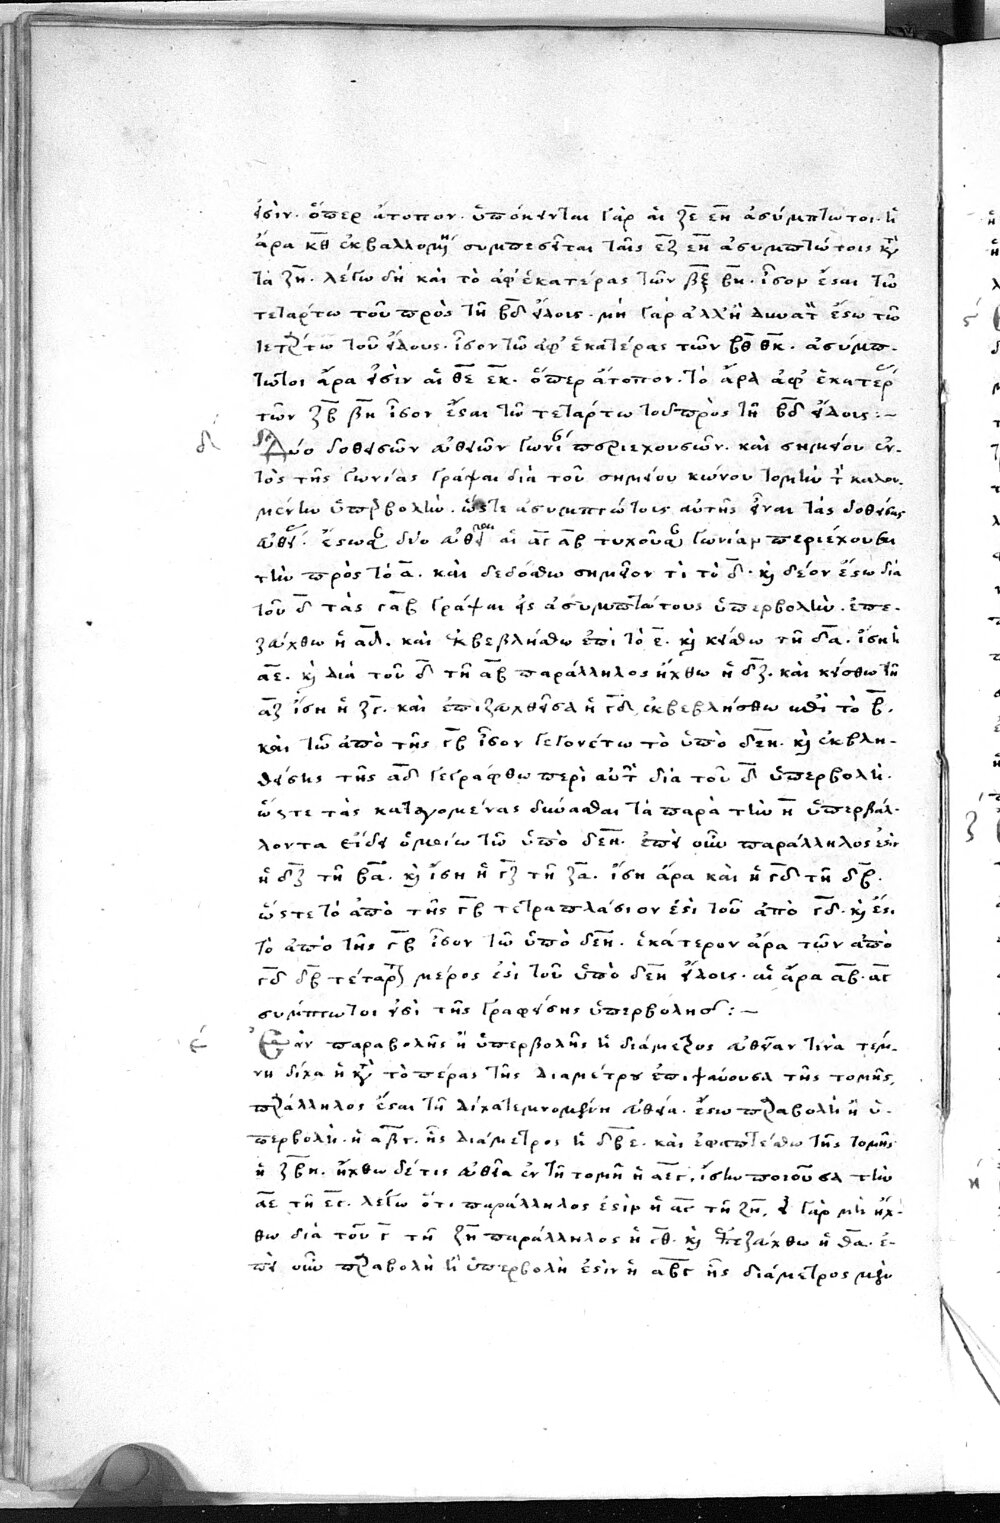 εἰσὶν· ὅπερ ἄτοπον· ὑπόκεινται γὰρ αἱ ζε εη ἀσύμπτωτοι· ἡ
ἄρα κθ ἐκβαλλομένη συμπεσεῖται ταῖς εζ εη ἀσυμπτώτοις κατὰ
τὰ ζη. λέγω δὴ καὶ τὸ ἀφ' ἑκατέρας τῶν βζ βη· ἴσον ἔσται τῷ
τετάρτῳ τοῦ πρὸς τῇ βδ εἴδους· μὴ γὰρ ἀλλ' εἰ δυνατὸν ἔστω τῷ
τετάρτῳ τοῦ εἴδους· ἴσον τῷ ἀφ' ἑκατέρας τῶν βθ θκ· ἀσύμπ-
τωτοι ἄρα εἰσὶν αἱ θε εκ· ὅπερ ἄτοπον· τὸ ἄρα ἀφ' ἑκατέρας
τῶν ζβ βη ἴσον ἔσται τῷ τετάρτῳ τοῦ πρὸς τῇ βδ εἴδους:~
δ Δύο δοθεισῶν εὐθειῶν γωνίαν περιεχουσῶν· καὶ σημείου ἐν-
τὸς τῆς γωνίας γράψαι διὰ τοῦ σημείου κώνου τομὴν τὴν καλου-
μένην ὑπερβολήν· ὥστε ἀσυμπτώτοις αὐτῆς εἶναι τὰς δοθείσας
εὐθείας· ἔστωσαν δύο εὐθεῖαι αἱ αγ αβ τυχοῦσαν γωνίαν περιέχουσαι
τὴν πρὸς τὸ α· καὶ δεδόσθω σημεῖον τι τὸ δ· καὶ δέον ἔστω διὰ
τοῦ δ τὰς γαβ γράψαι εἰς ἀσυμπτώτους ὑπερβολήν· ἐπε-
ζεύχθω ἡ αδ· καὶ ἐκβεβλήσθω ἐπὶ τὸ ε· καὶ κείσθω τῇ δα· ἴση ἡ
αε· καὶ διὰ τοῦ δ τῇ αβ παράλληλος ἤχθω ἡ δζ· καὶ κείσθω τῇ
αζ ἴση ἡ ζγ· καὶ ἐπιζευχθεῖσα ἡ γδ ἐκβεβλήσθω ἐπὶ τὸ β·
καὶ τῷ ἀπὸ τῆς γβ ἴσον γεγονέτω τὸ ὑπὸ δεη· καὶ ἐκβλη-
θείσης τῆς αδ γεγράφθω περὶ αὐτὴν διὰ τοῦ δ ὑπερβολὴ·
ὥστε τὰς καταγομένας δύνασθαι τὰ παρὰ τὴν η ὑπερβάλ-
λοντα εἴδει ὁμοίῳ τῷ ὑπὸ δεη· ἐπεὶ οὖν παράλληλος ἐστὶν
ἡ δζ τῇ βα· καὶ ἴση ἡ γζ τῇ ζα· ἴση ἄρα καὶ ἡ γδ τῇ δβ·
ὥστε τὸ ἀπὸ τῆς γβ τετραπλάσιον ἐστὶ τοῦ ἀπὸ γδ· καὶ ἔστι
τὸ ἀπὸ τῆς γβ ἴσον τῷ ὑπὸ δεη· ἑκάτερον ἄρα τῶν ἀπὸ
γδ δβ τέταρτον μέρος ἐστὶ τοῦ ὑπὸ δεη εἴδους· αἱ ἄρα αβ· αγ
συμπτωτοι εἰσὶ τῆς γραφείσης ὑπερβολῆς:~
ε Ἐὰν παραβολῆς ἢ ὑπερβολῆς ἡ διάμετρος εὐθεῖαν τινὰ τέμ-
νῃ δίχα ἡ κατὰ τὸ πέρας τῆς διαμέτρου ἐπιψαύουσα τῆς τομῆς,
παράλληλος ἔσται τῇ δίχα τεμνομένῃ εὐθείᾳ· ἔστω παραβολὴ ἢ ὑ-
περβολὴ· ἡ αβγ· ἧς διάμετρος ἡ δβε· καὶ ἐφαπτέσθω τῆς τομῆς
ἡ ζβη· ἤχθω δέ τις εὐθεῖα ἐν τῇ τομῇ ἡ αεγ, ἴσην ποιοῦσα τὴν
αε τῇ εγ· λέγω ὅτι παράλληλος ἐστὶν ἡ αγ τῇ ζη, εἰ γὰρ μὴ ἤχ-
θω διὰ τοῦ γ τῇ ζη παράλληλος ἡ γθ· καὶ ἐπεζεύχθω ἡ θα· ἐ-
πεὶ οὖν παραβολὴ ἢ ὑπερβολὴ ἐστὶν ἡ αβγ ἧς διάμετρος μὲν